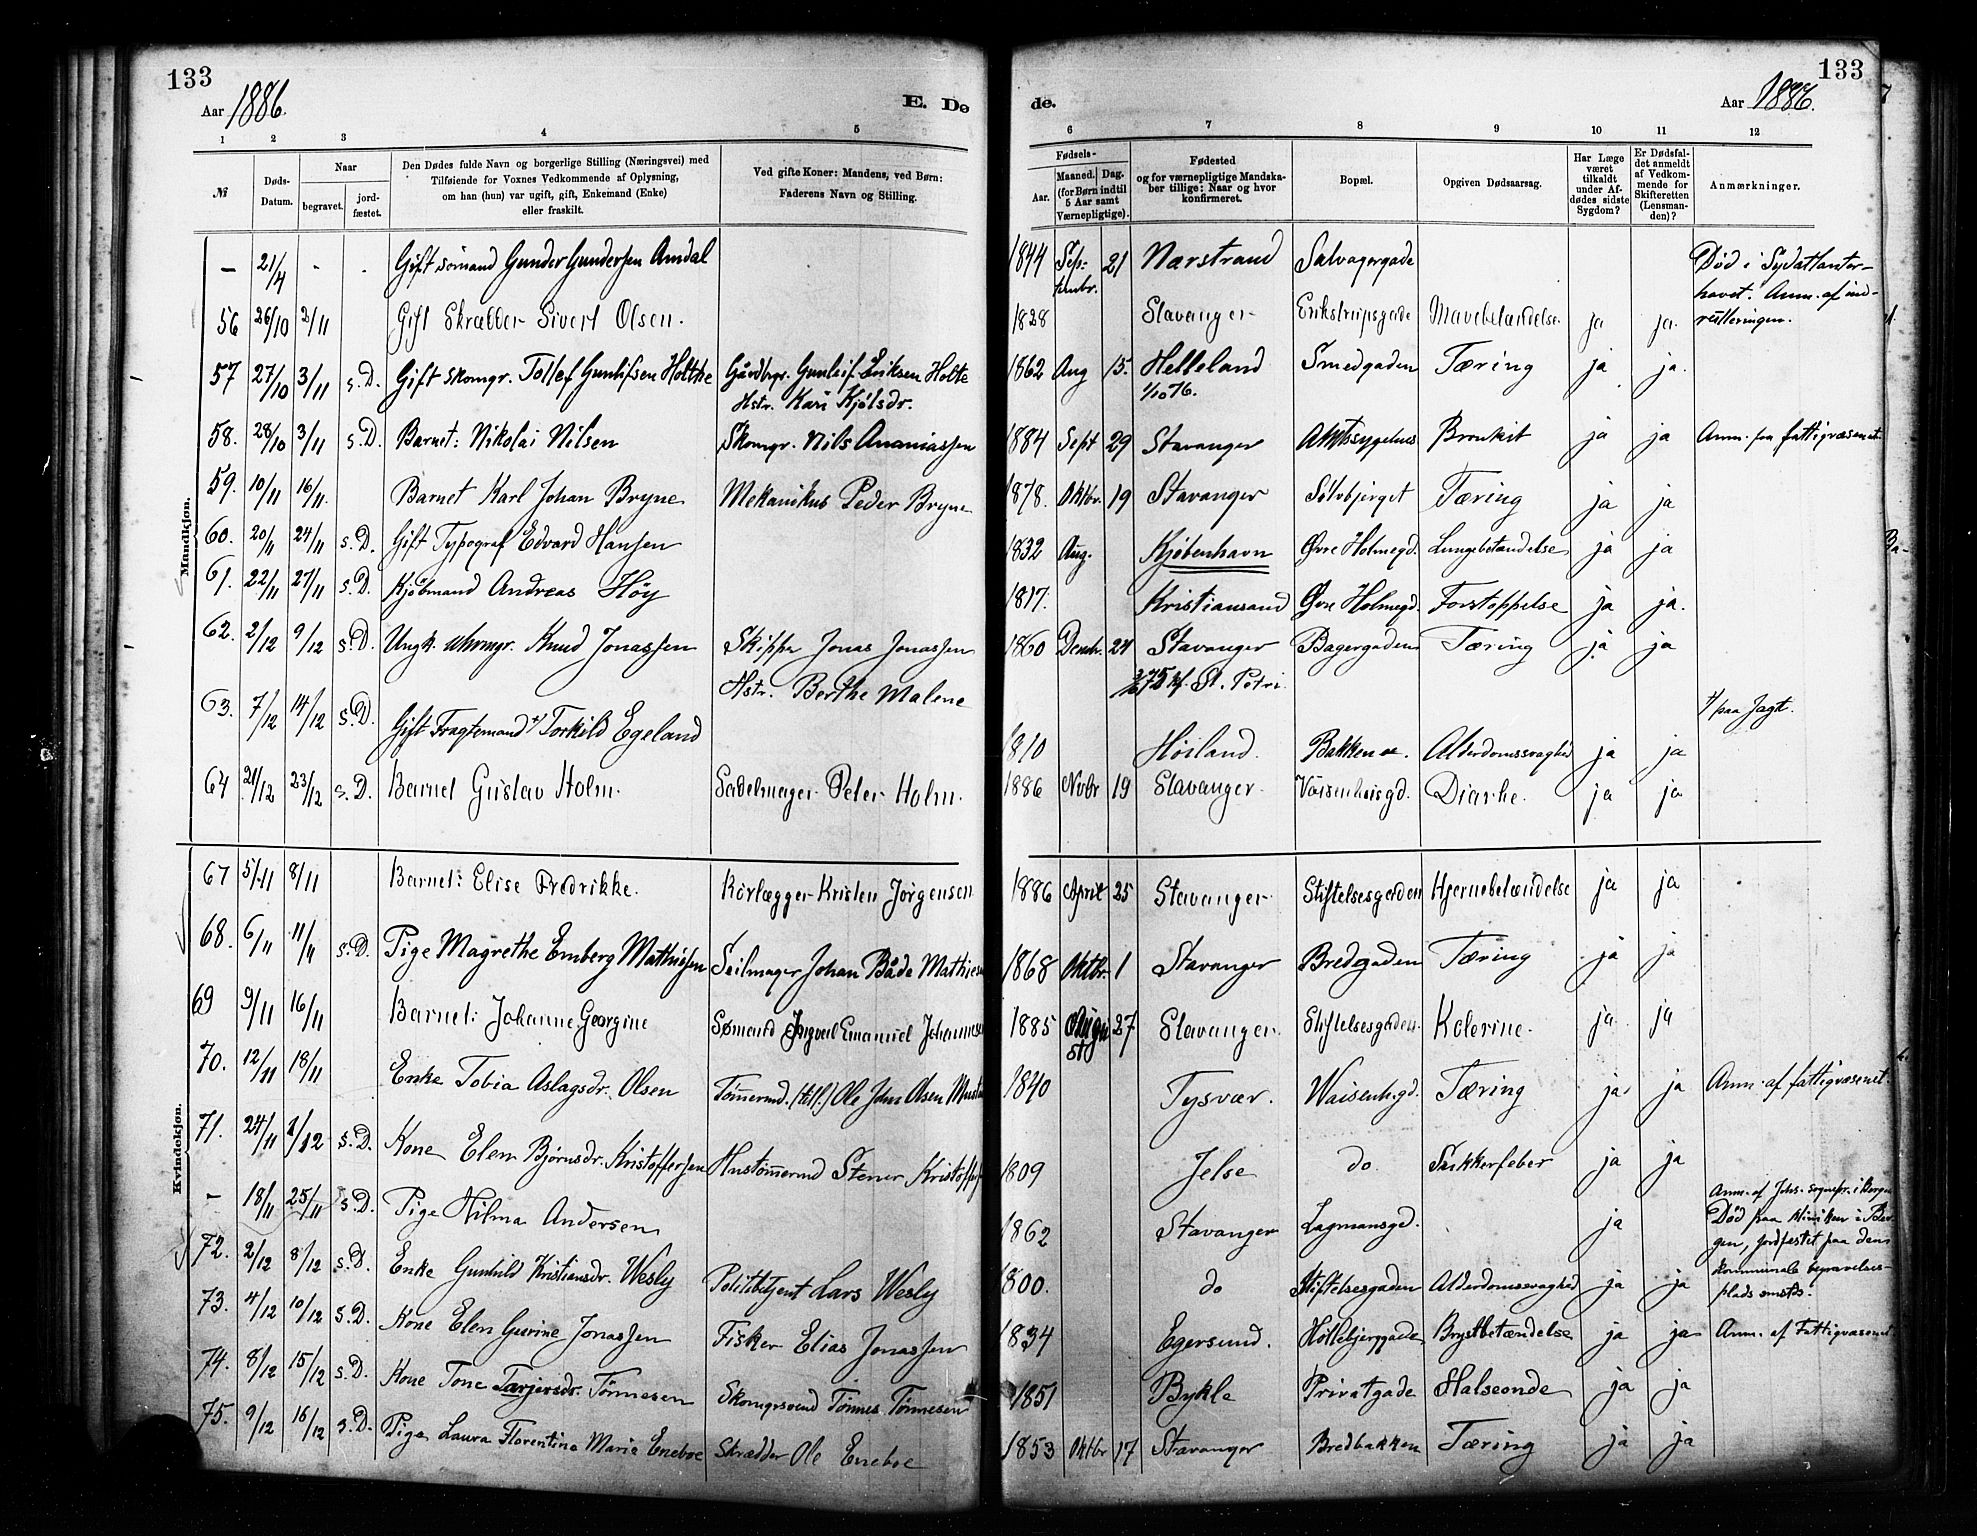 133
Aar 1886.
E. De
1 2 3 4 5
№
Døds-
Datum.
Naar
begravet.
jord-
fæstet.
Den Dødes fulde Navn og borgerlige Stilling (Næringsvei) med
Tilføiende for Voxnes Vedkommende af Oplysning,
om han (hun) var ugift, gift, Enkemand (Enke)
eller fraskilt.
Ved gifte Koner: Mandens, ved Børn:
Faderens Navn og Stilling.
Mandkjøn.
— 21/4 - . Gift sømand Gunder Gundersen Amdal
56 26/10 2/11 Gift Skrædder Sivert Olsen.
57 27/10 3/11 s.D. Gift skomgr. Tollef Gunlifsen Holthe Gårdbgr. Gunleif Eriksen Holte
Hstr. Kari Kjølsdr.
58. 28/10 3/11 s.D. Barnet: Nikolai Nilsen Skomgr. Nils Ananiassen
59. 10/11 16/11. Barnet Karl Johan Bryne Mekanikus Peder Bryne
60. 20/11 24/11 s.D. Gift Typograf Edvard Hansen
61. 22/11 27/11 s.D. Kjøbmand Andreas Höy
62. 2/12 9/12 s.D. Ungk. uhrmgr. Knud Jonassen Skipper Jonas Jonassen
Hstr. Berthe Malene
63. 7/12 14/12 s.D. Gift Fragtemand +/ Torkild Egeland
64 21/12 23/12 s.D. Barnet Gustav Holm. Sadelmager Peter Holm.
Kvindekjøn.
67 5/11 8/11 Barnet: Elise Fredrikke. Rörlægger Kristen Jörgensen
68. 6/11 11/11 s.D. Pige Magrethe Emberg Matthissen Seilmager Johan Både
69 9/11 16/11 Barnet: Johanne Georgine Sømand Ingvald Emanuel
70. 12/11 18/11 Enke Tobia Aslagsdr. Olsen Tömermd. Ole John Olsen
71. 24/11 1/12 s.D. Kone Elen Bjørnsdr. Kristoffersen Hustömermd Stener
— 18/11 25/11 s.D. Pige Hilma Andersen
72. 2/12 8/12 s.D. Enke Gunhild Kristiansdr. Wesly Politibetjent Lars Wesly
73. 4/12 10/12 s.D. Kone Elen Gurine Jonassen Fisker Elias Jonassen
74. 8/12 15/12 s.D. Kone Tone Tarjersdr. Tönnesen Skomgrsvend Tönnes Tönnesen
75. 9/12 16/12 s.D. Pige Laura Florentine Marie Eneboe Skrædder Ole Eneboe
de.
133
Aar 1886.
6 7 8 9 10 11 12
Fødsels-
Aar.
Maaned.
Dag.
(for Børn indtil
5 Aar samt
Værnepligtige).
Fødested
og for værnepligtige Mandska-
ber tillige: Naar og hvor
konfirmeret.
Bopæl.
Opgiven Dødsaarsag.
Har Læge
været
tilkaldt
under Af-
dødes sidste
Sygdom?
Er Dødsfal-
det anmeldt
af Vedkom-
mende for
Skifteretten
(Lensman-
den)?
Anmærkninger.
1844 Sep- 21 Narstrand Salvagergade Død i Sydatlanter-
tembr. havet. Anm. af ind-
rulleringen.
1828 Stavanger Erikstrupsgade Mavebetændelse. ja ja.
1862 Aug 15. Helleland Smedgaden Tæring ja ja.
1/10 76.
1884 Sept 29 Stavanger Amtssygehus Bronkit ja ja Anm. fra fattigvæsenet
1878. Oktbr. 19 Stavanger Sölvbjerget Tæring ja ja
1832 Aug. Kjøbenhavn Øvre Holmegd. Lungebetændelse ja ja
1817. Kristiansand Øvre Holmegd. Forstoppelse ja ja.
1860 Dembr. 24 Stavanger Bagergaden Tæring ja ja
St. Petri
+/ paa Jagt.
1810 Høiland. Bakken Alderdomssvaghed ja ja
1886 Novbr 19 Stavanger Vaisenhusgd. Diarhe. ja ja
1886 April 25 Stavanger Stiftelsesgaden Hjernebetændelse ja ja
1868 Oktbr. 1 Stavanger Bredegaden Tæring ja ja
1885 August 27 Stavanger. Stiftelsesgaden. Kolerine. ja ja
1840 Tysvær. Waisenh.gd. Tæring ja ja Anm. af fattigvæsenet.
1809 Jelse do Sukkerfeber ja ja
1862 Stavanger Lagmansgd. ja Anm. af Johs. sognepr. i Bergen
Død paa kliniken i Ber-
gen, jordfæstet paa dens
kommunale begravelses-
plads smsts.
1800. do Stiftelsesgaden Alderdomssvaghed ja ja
1834 Egersund. Holtebjerggade Brystbetændelse ja ja Anm. af Fattigvæsenet
1851 Bykle Privatgade Halsonde ja ja
1853 Oktbr 17 Stavanger Bredbakken Tæring ja ja